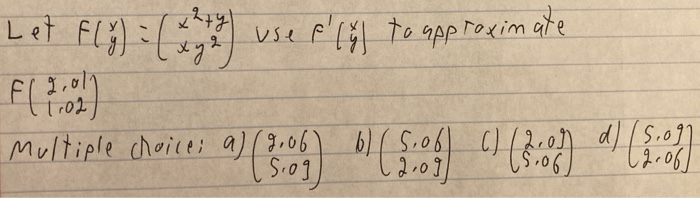 Let F(x y) = (x²+y xy²) use F'(x y) to approximate
F(2.01 1.02)
Multiple choice: a) (2.06 5.09) b) (5.06 2.09) c) (2.09 5.06) d) (5.09 2.06)